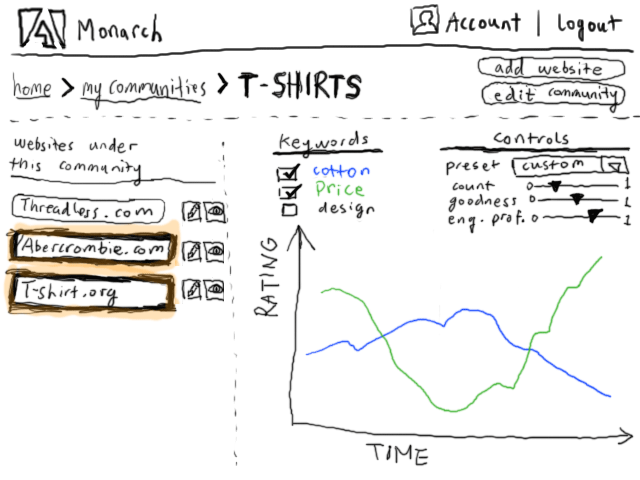 Monarch
Account | Logout
home > my communities > T-SHIRTS
add website
edit community
websites under
this community
Threadless.com
Abercrombie.com
T-shirt.org
Keywords
cotton
Price
design
Controls
preset custom
count 0 1
goodness 0 1
eng. prof. 0 1
RATING
TIME